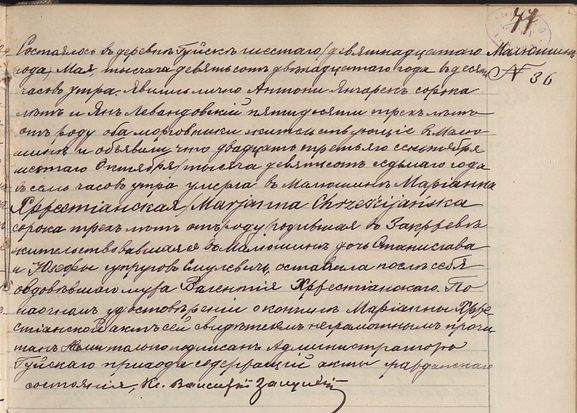 44
Состоялось въ деревнѣ Гуйскъ шестаго /девятнадцатаго Малюшинъ
года, Мая, тысяча девятьсот двѣнадцатаго года въ десять N 36
часовъ утра. Явились лично Антони Янчарекъ сорока
лѣтъ и Янъ Левандовскій пятидесяти трехъ лѣтъ
отъ роду оба морговники жительствующіе въ Малю-
шинѣ и объявили что двадцать третьяго сентября
шестаго Октября /тысяча девятьсотъ седьмаго года
въ семь часовъ утра умерла въ Малюшинѣ Маріанна
Хрѣстіанская /Marjanna Chrześcijańska
сорока трехъ лѣтъ отъ роду родившая въ
жительствовавшая въ Малюшинѣ дочь Станислава
и Юзефы супруговъ оставила послѣ себя
овдовѣвшаго мужа Валентія Хрѣстіанскаго. По
настоящемъ удостовѣреніи о кончинѣ Маріанны Хрѣ-
стіанской актъ сей свидѣтелямъ неграмотнымъ прочи-
танъ Нами только подписанъ Администраторъ
Гуйскаго прихода содержащій акты гражданскаго
состоянія, Кс.